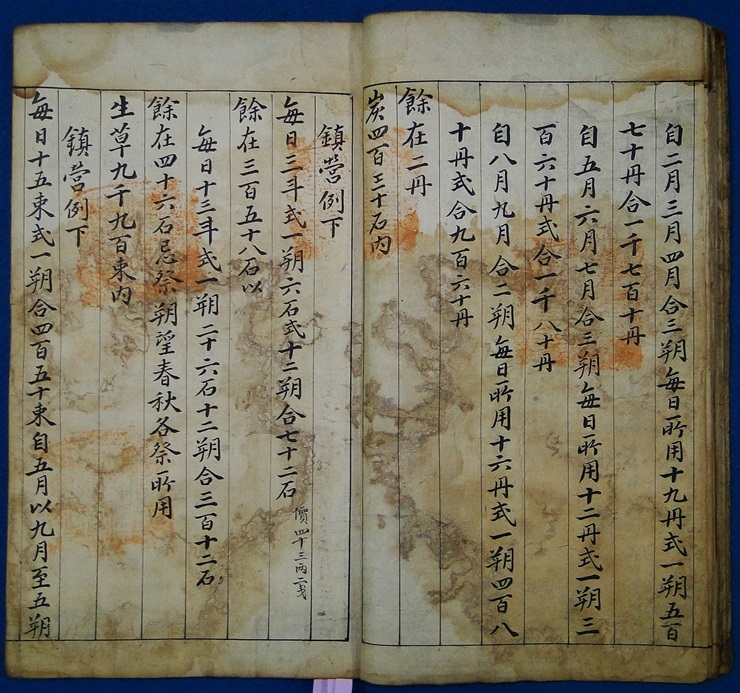 自二月三月四月合三朔每日所用十九丹式一朔五百
七十丹合一千七百十丹
自五月六月七月合三朔每日所用十二丹式一朔三
百六十丹式合一千八十丹
自八月九月合二朔每日所用十六丹式一朔四百八
十丹式合九百六十丹
餘在二丹
炭四百三十石內
鎮營例下
每日三斗式一朔六石式十二朔合七十二石 價四十三兩二戔
餘在三百五十八石以
每日十三斗式一朔二十六石十二朔合三百十二石
餘在四十六石忌祭朔望春秋各祭所用
生草九千九百束內
鎮營例下
每日十五束式一朔合四百五十束自五月以九月至五朔